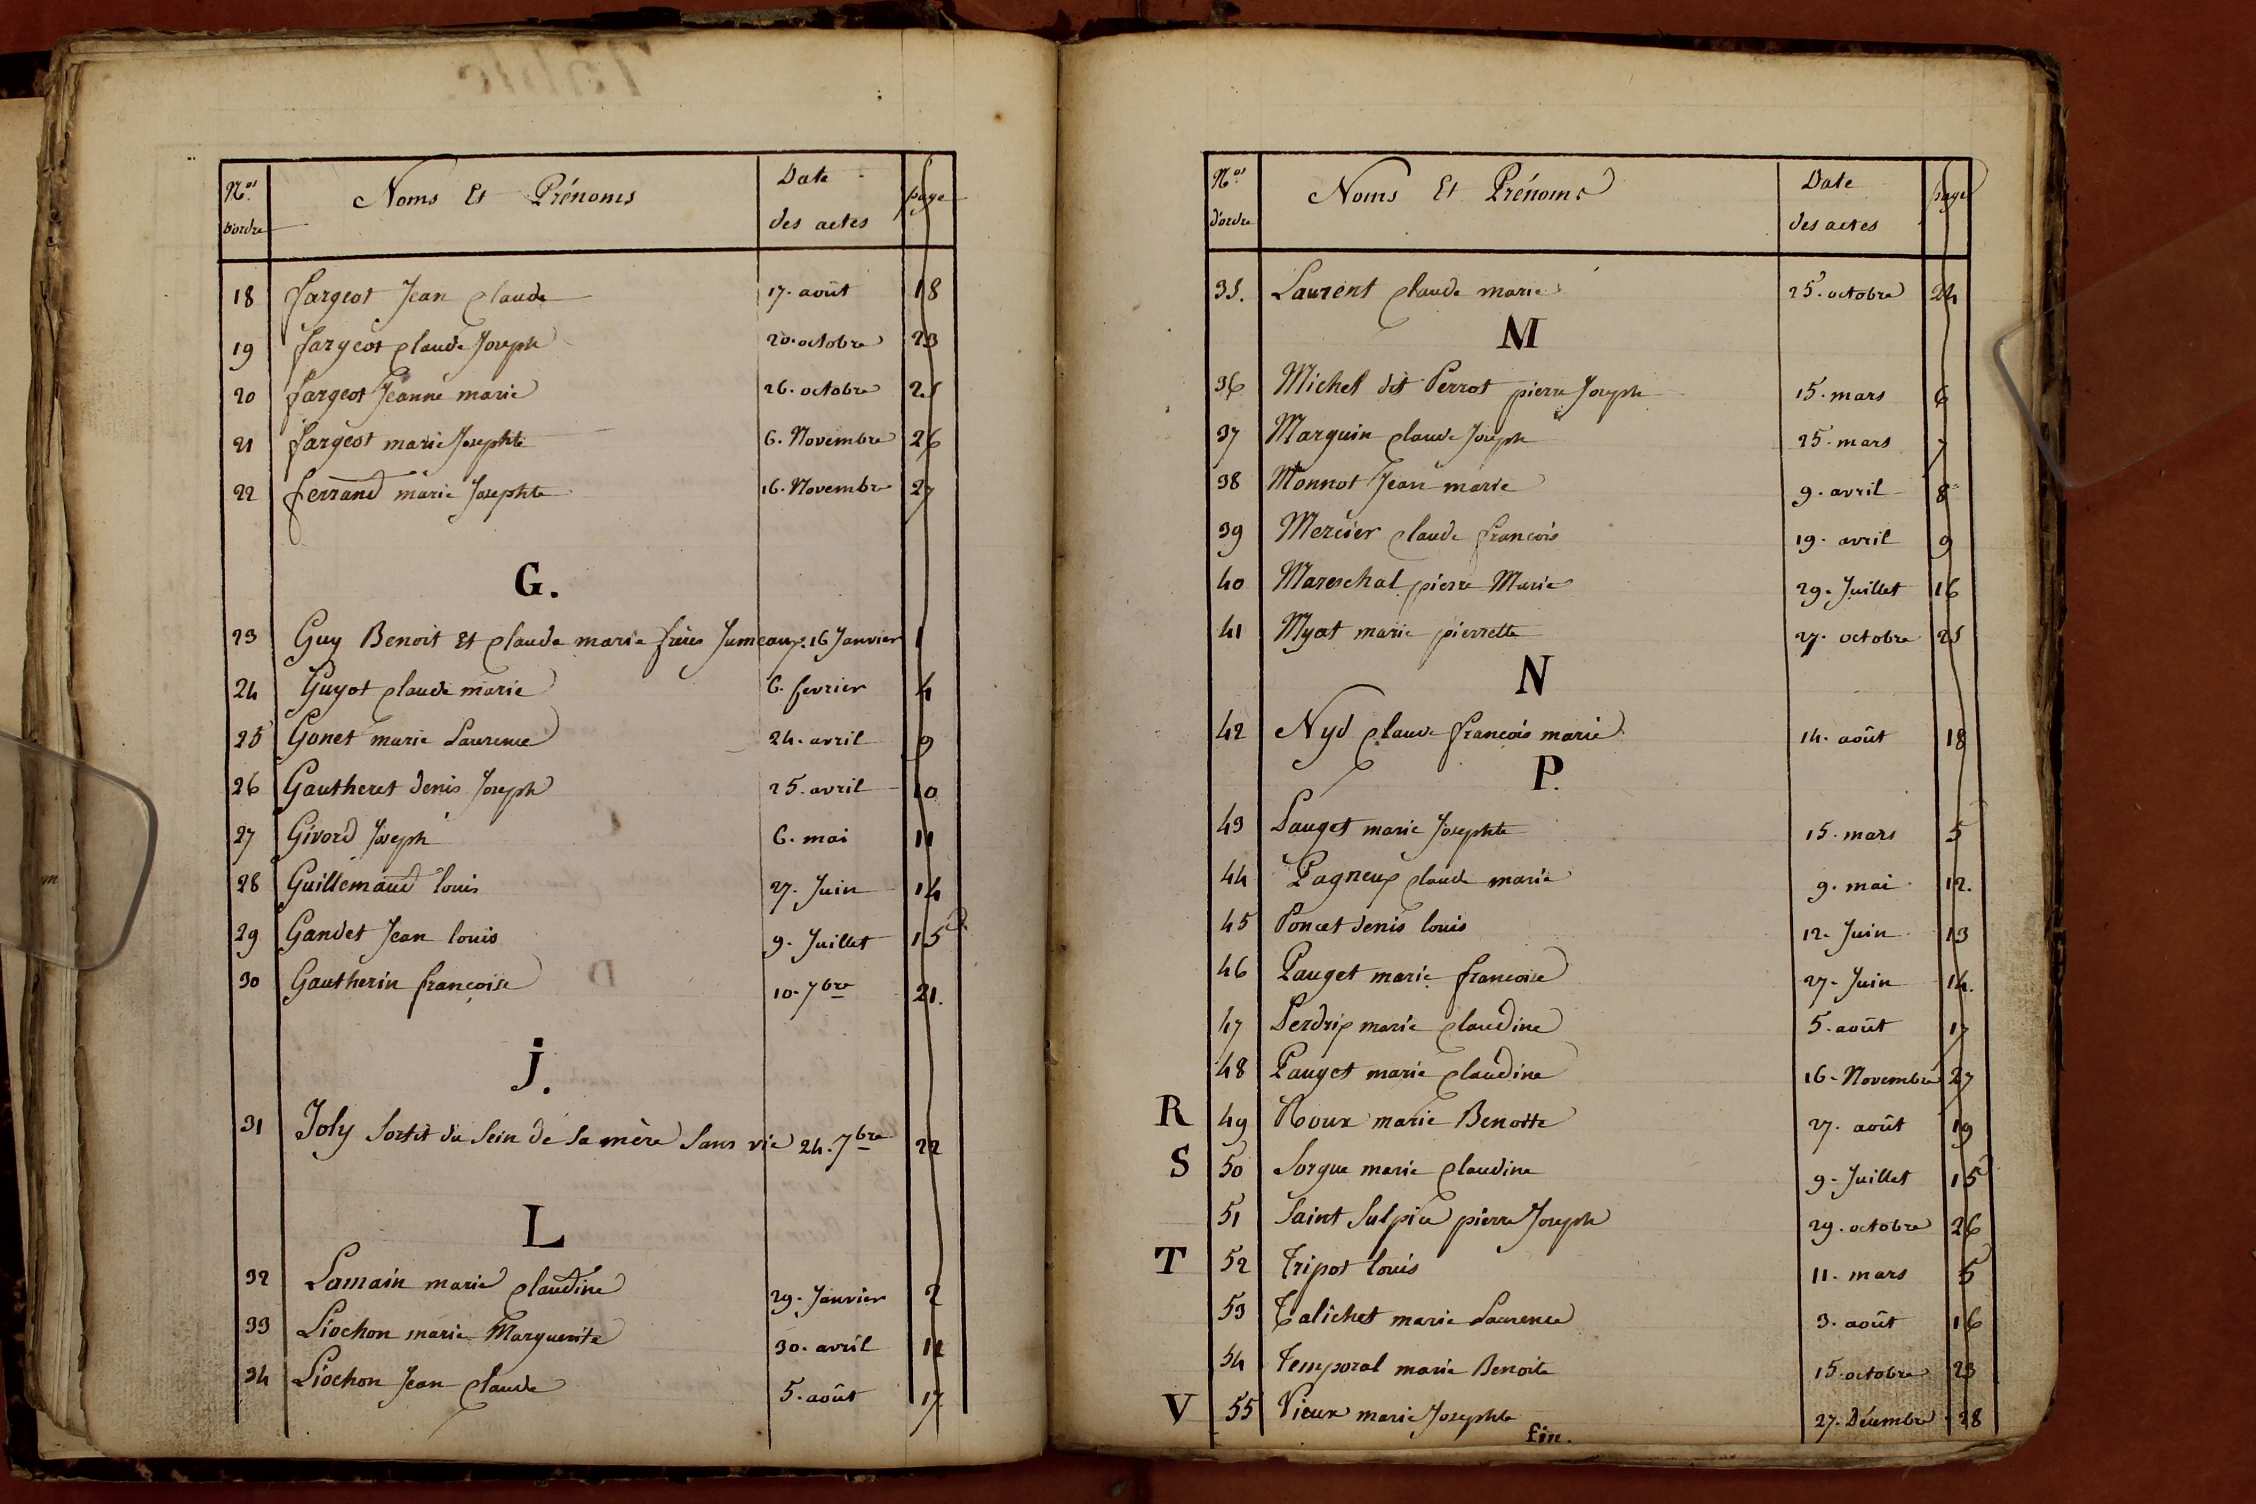 Nos d'ordre Noms Et Prénoms Date des actes page
18 fargeot Jean claude 17. août 18
19 fargeot claude Joseph 20. octobre 23
20 fargeot Jeanne marie 26. octobre 25
21 fargeot marie Josephte 6. Novembre 26
22 ferrand marie Josephte 16. Novembre 27
G.
23 Guy Benoit Et claude marie frères Jumeaux. 16 Janvier 1
24 Guyot claude marie 6. fevrier 4
25 Gonet marie Laurence 24. avril 9
26 Gautheret denis Joseph 25. avril 10
27 Givord Joseph 6. mai 11
28 Guillemaud louis 27. Juin 14
29 Gandet Jean louis 9. Juillet 15
30 Gautherin françoise 10. 7bre 21.
j.
31 Joly sortit du sein de sa mère sans vie 24. 7bre 22
L
32 Lamain marie claudine 29. Janvier 2
33 Liochon marie Marguerite 30. avril 11
34 Liochon Jean claude 5. août 17
Nos d'ordre Noms Et Prénoms Date des actes page
35. Laurent claude marie 25. octobre 24
M
36 Michel dit Perrot pierre Joseph 15. mars 6
37 Marguin claude Joseph 25. mars 7
38 Monnot Jean marie 9. avril 8
39 Mercier claude françois 19. avril 9
40 Mareschal pierre Marie 29. Juillet 16
41 Myat marie pierrette 27. octobre 25
N
42 Nyd claude françois marie 14. août 18
P.
43 Pauget marie Josephte 15. mars 5
44 Pagneux claude marie 9. mai 12.
45 Poncet denis louis 12. Juin 13
46 Pauget marie francoise 27. Juin 14.
47 Perdrix marie claudine 5. août 17
48 Pauget marie claudine 16. Novembre 27
R 49 Roux marie Benoite 27. août 19
S 50 Sorgue marie claudine 9. Juillet 15
51 Saint Sulpice pierre Joseph 29. octobre 26
T 52 Tripot louis 11. mars 5
53 Talichet marie Laurence 3. août 16
54 Temporal marie Benoite 15. octobre 23
V 55 Vieux marie Josephte 27. Décembre 28
fin.